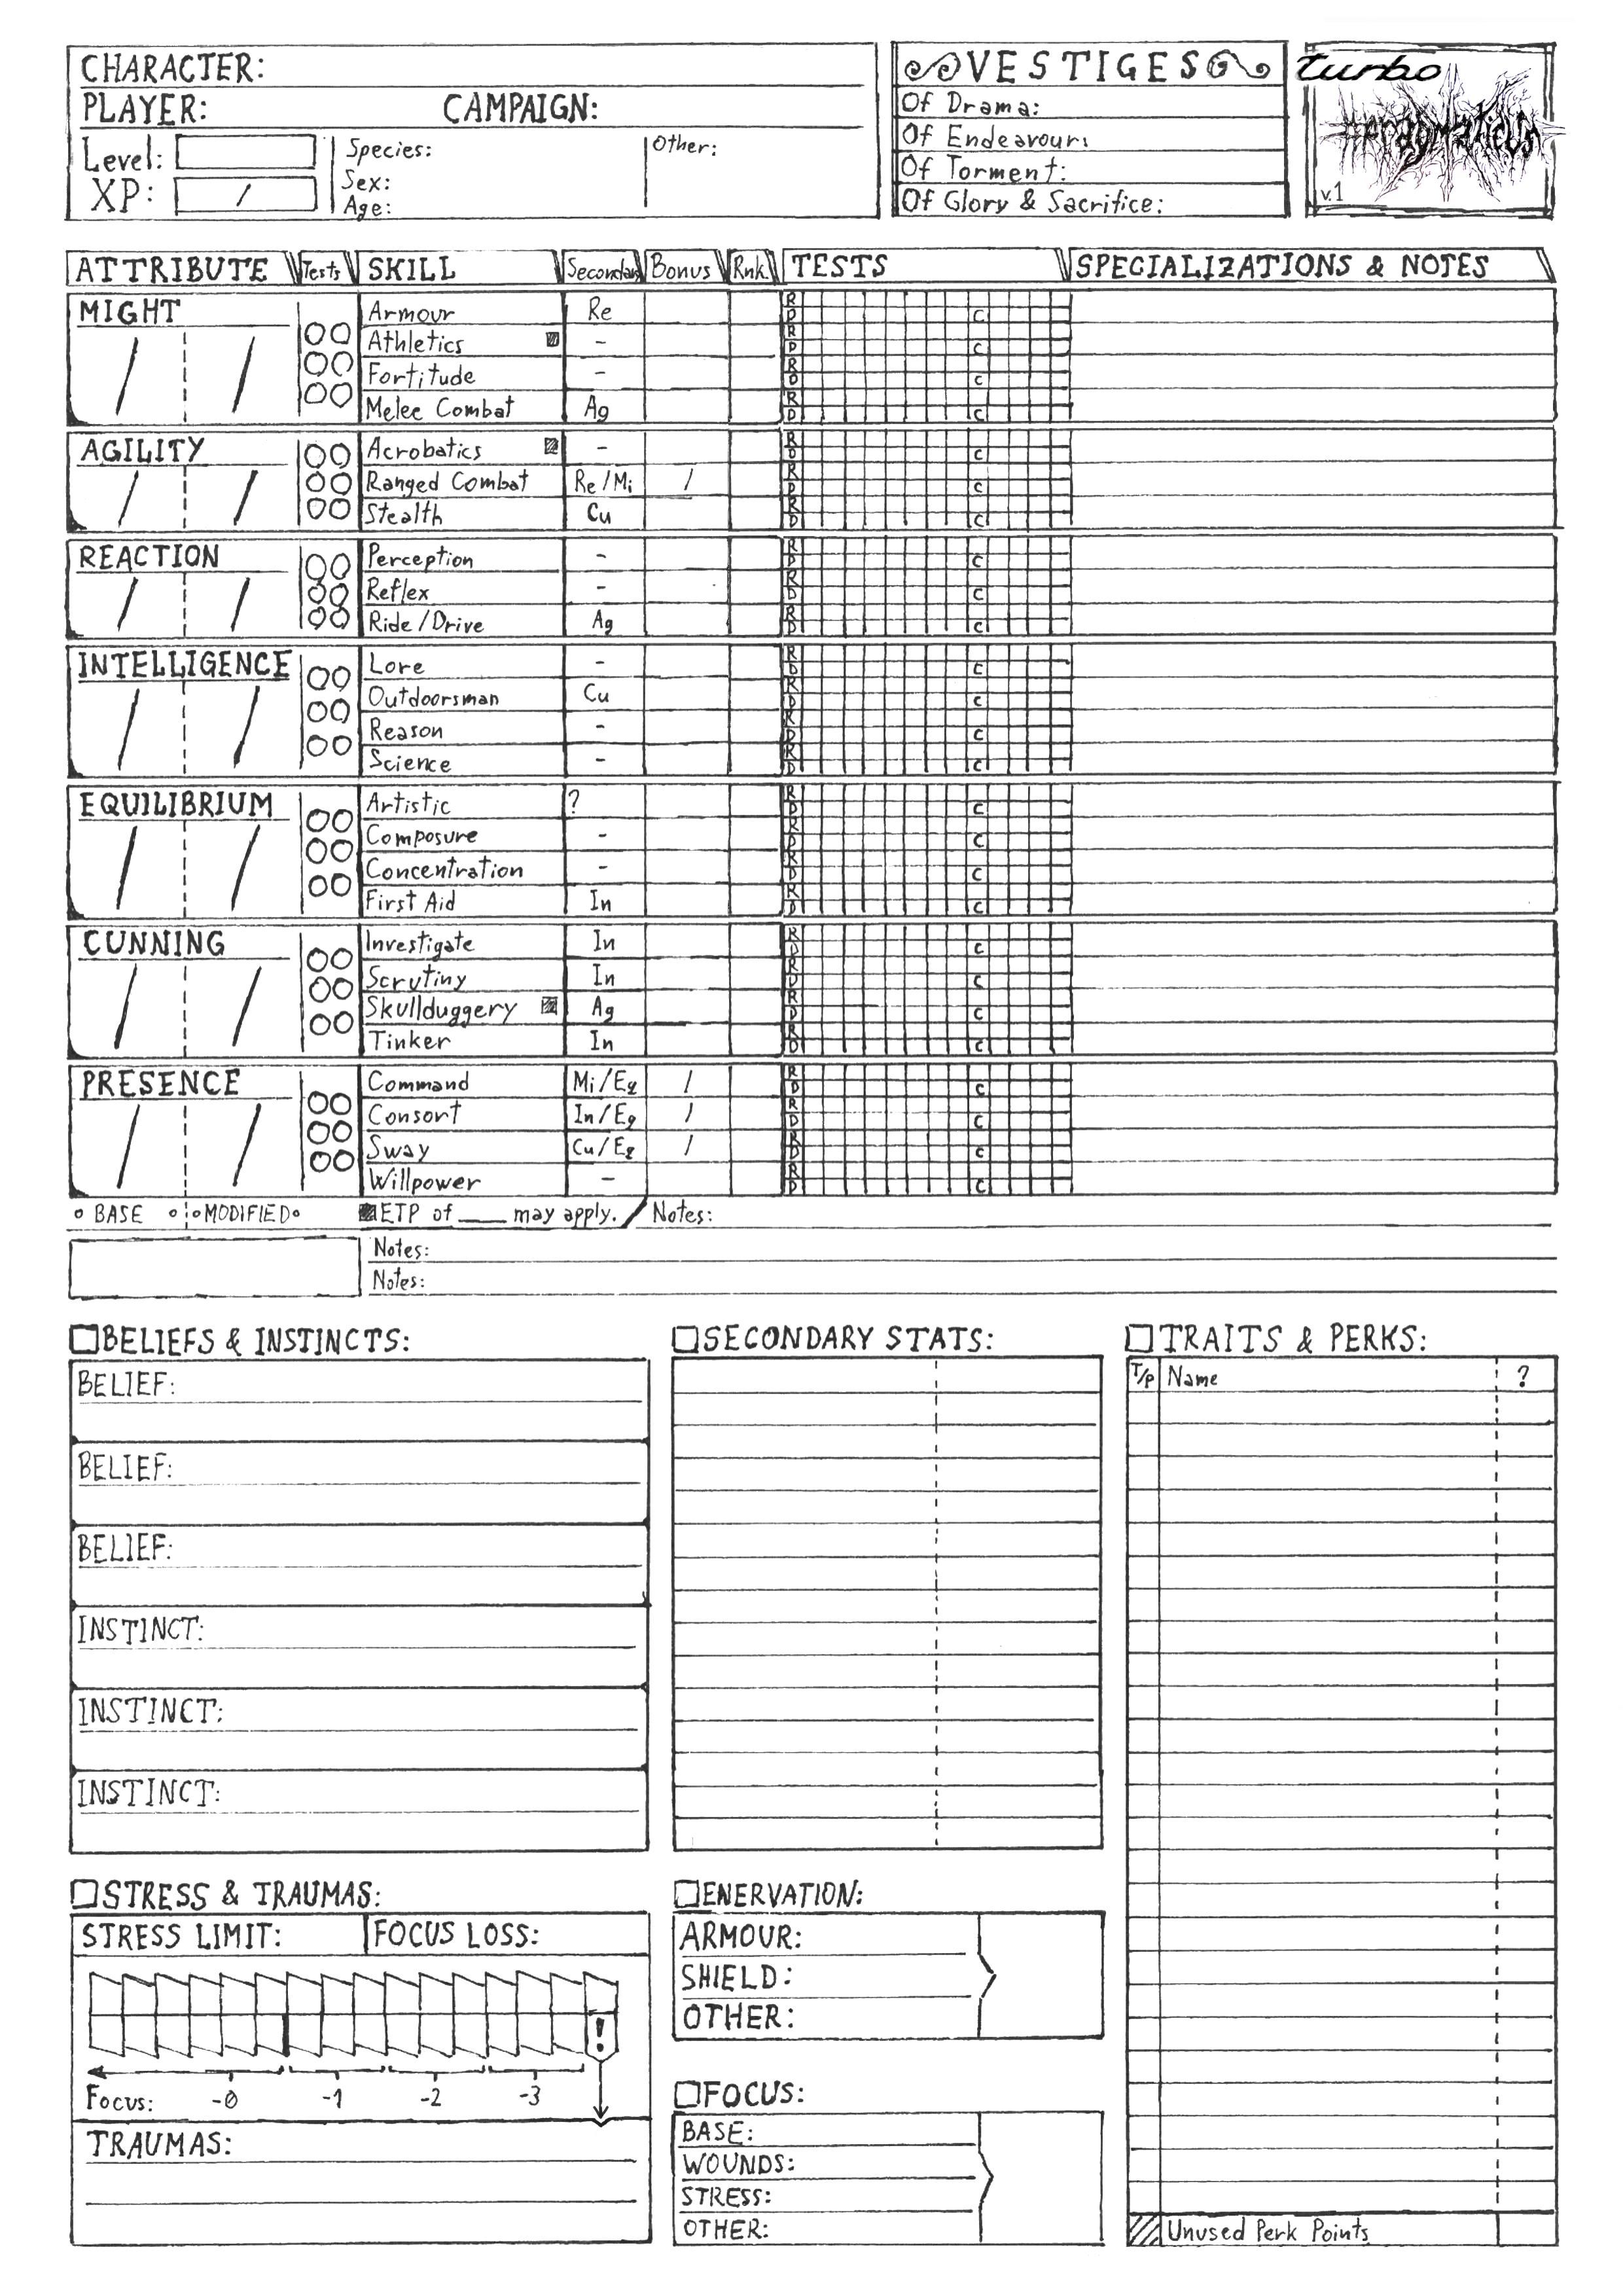 CHARACTER:
PLAYER: CAMPAIGN:
Level:
XP: /
Species:
Sex:
Age:
Other:
VESTIGES
Of Drama:
Of Endeavour:
Of Torment:
Of Glory & Sacrifice:
turbo
#Fragmaticus
v.1
ATTRIBUTE Tests SKILL Secondary Bonus Rnk. TESTS SPECIALIZATIONS & NOTES
MIGHT
Armour Re R D C
Athletics - R D C
Fortitude - R D C
Melee Combat Ag R D C
AGILITY
Acrobatics - R D C
Ranged Combat Re/Mi / R D C
Stealth Cu R D C
REACTION
Perception - R D C
Reflex - R D C
Ride/Drive Ag R D C
INTELLIGENCE
Lore - R D C
Outdoorsman Cu R D C
Reason - R D C
Science - R D C
EQUILIBRIUM
Artistic ? R D C
Composure - R D C
Concentration - R D C
First Aid In R D C
CUNNING
Investigate In R D C
Scrutiny In R D C
Skullduggery Ag R D C
Tinker In R D C
PRESENCE
Command Mi/Eq / R D C
Consort In/Eq / R D C
Sway Cu/Eq / R D C
Willpower - R D C
BASE MODIFIED ETP of ____ may apply. / Notes:
Notes:
Notes:
BELIEFS & INSTINCTS:
BELIEF:
BELIEF:
BELIEF:
INSTINCT:
INSTINCT:
INSTINCT:
SECONDARY STATS:
TRAITS & PERKS:
T/P Name ?
Unused Perk Points
STRESS & TRAUMAS:
STRESS LIMIT: FOCUS LOSS:
!
Focus: -0 -1 -2 -3
TRAUMAS:
ENERVATION:
ARMOUR:
SHIELD:
OTHER:
FOCUS:
BASE:
WOUNDS:
STRESS:
OTHER: